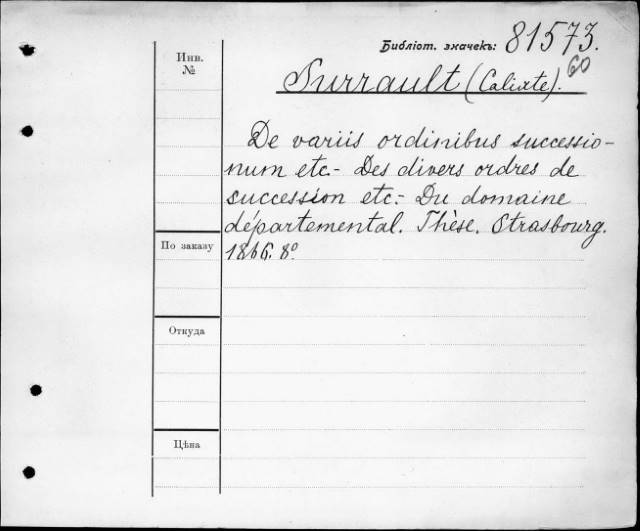 Библіот. значекъ: 81573.
60
Инв.
№
Surrault (Calixte).
De variis ordinibus successio-
num etc.- Des divers ordres de
succession etc.- Du domaine
départemental. Thèse. Strasbourg.
1866. 8º
По заказу
Откуда
Цѣна